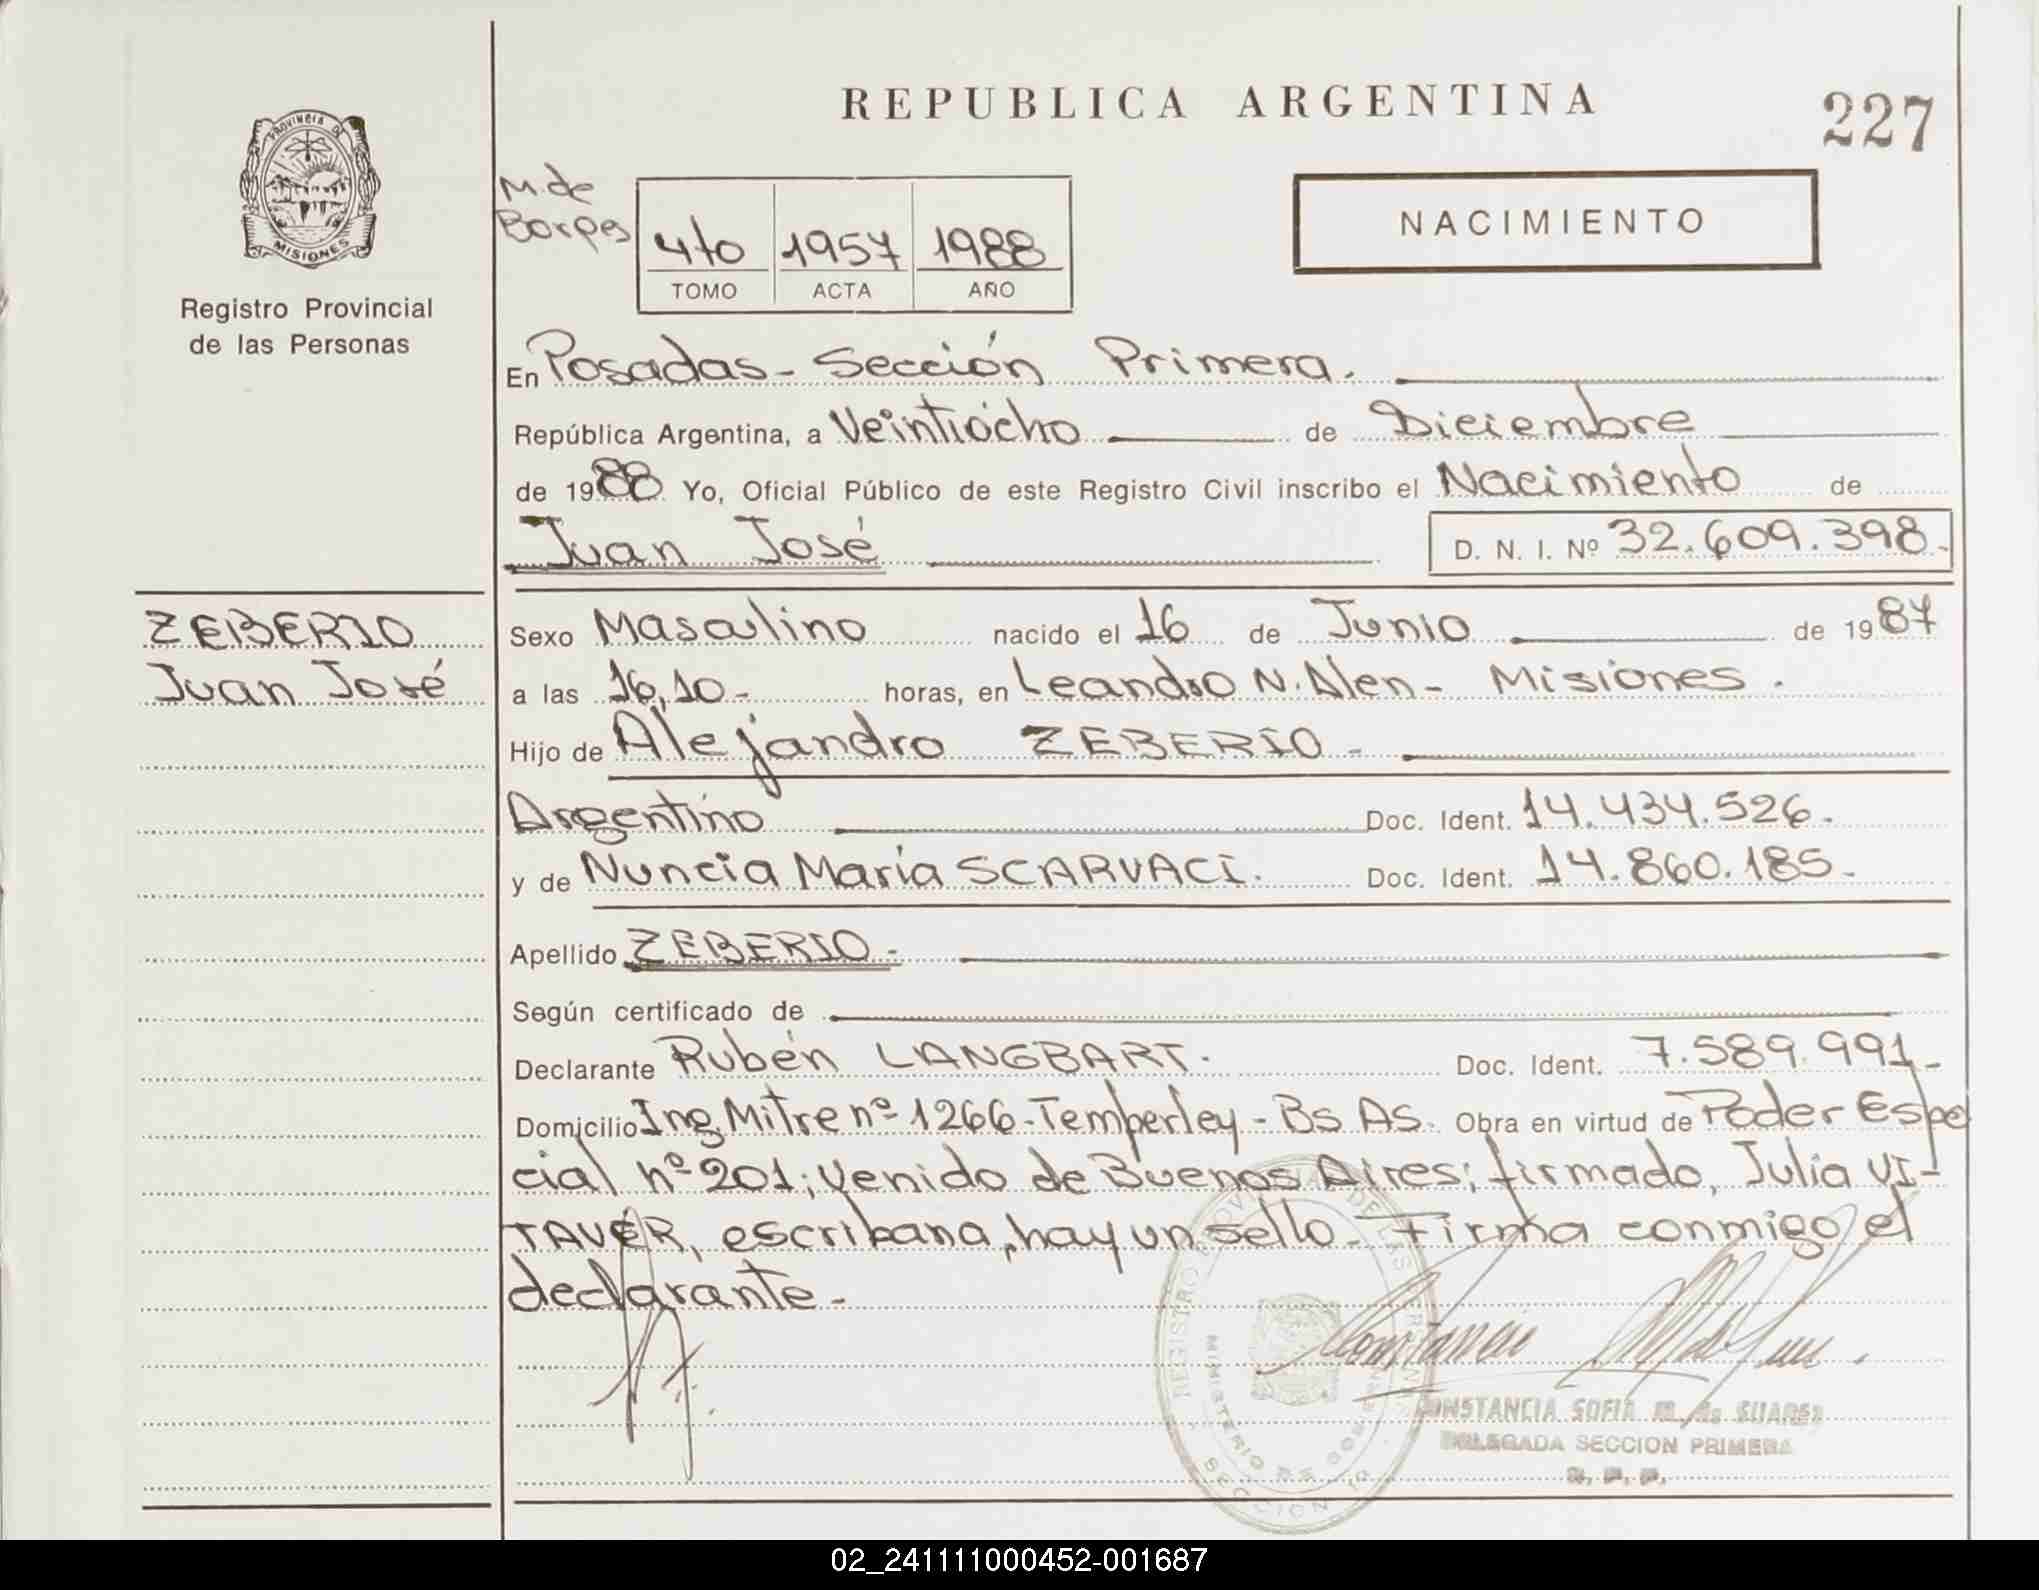 REPUBLICA ARGENTINA
227
PROVINCIA DE
MISIONES
Registro Provincial
de las Personas
M. de
Borges
4to 1957 1988
TOMO ACTA AÑO
NACIMIENTO
En Posadas - Sección Primera.
República Argentina, a Veintiócho de Diciembre
de 1988 Yo, Oficial Público de este Registro Civil inscribo el Nacimiento de
Juan José D. N. I. Nº 32.609.398.-
ZEBERIO
Juan José
Sexo Masculino nacido el 16 de Junio de 1987
a las 16,10- horas, en Leandro N. Alen - Misiones.
Hijo de Alejandro ZEBERIO -
Argentino Doc. Ident. 14.434.526.
y de Nuncia María SCARVACI. Doc. Ident. 14.860.185.-
Apellido ZEBERIO.-
Según certificado de
Declarante Rubén LANGBART. Doc. Ident. 7.589.991.-
Domicilio Ing. Mitre nº 1266 - Temperley - Bs As. Obra en virtud de Poder Espe
cial nº 201; venido de Buenos Aires; firmado, Julia VI-
TAVER, escribana, hay un sello. Firma conmigo el
declarante.-
REGISTRO PROVINCIAL DE LAS PERSONAS
MINISTERIO DE GOBIERNO
SECCION 1º
CONSTANCIA SOFIA M. de SUAREZ
DELEGADA SECCION PRIMERA
R. P. P.
02_241111000452-001687